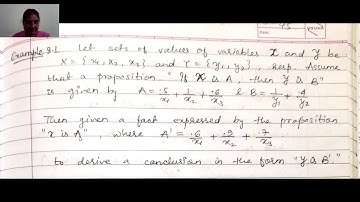 45
Example 8.1 Let sets of values of variables X and Y be
X = {x1, x2, x3} and Y = {y1, y2}, resp. Assume
that a proposition "If X is A, then Y is B"
is given by A = .5/x1 + 1/x2 + .6/x3 & B = 1/y1 + .4/y2
Then given a fact expressed by the proposition
"x is A'", where A' = .6/x1 + .9/x2 + .7/x3.
to derive a conclusion in the form "Y is B'."